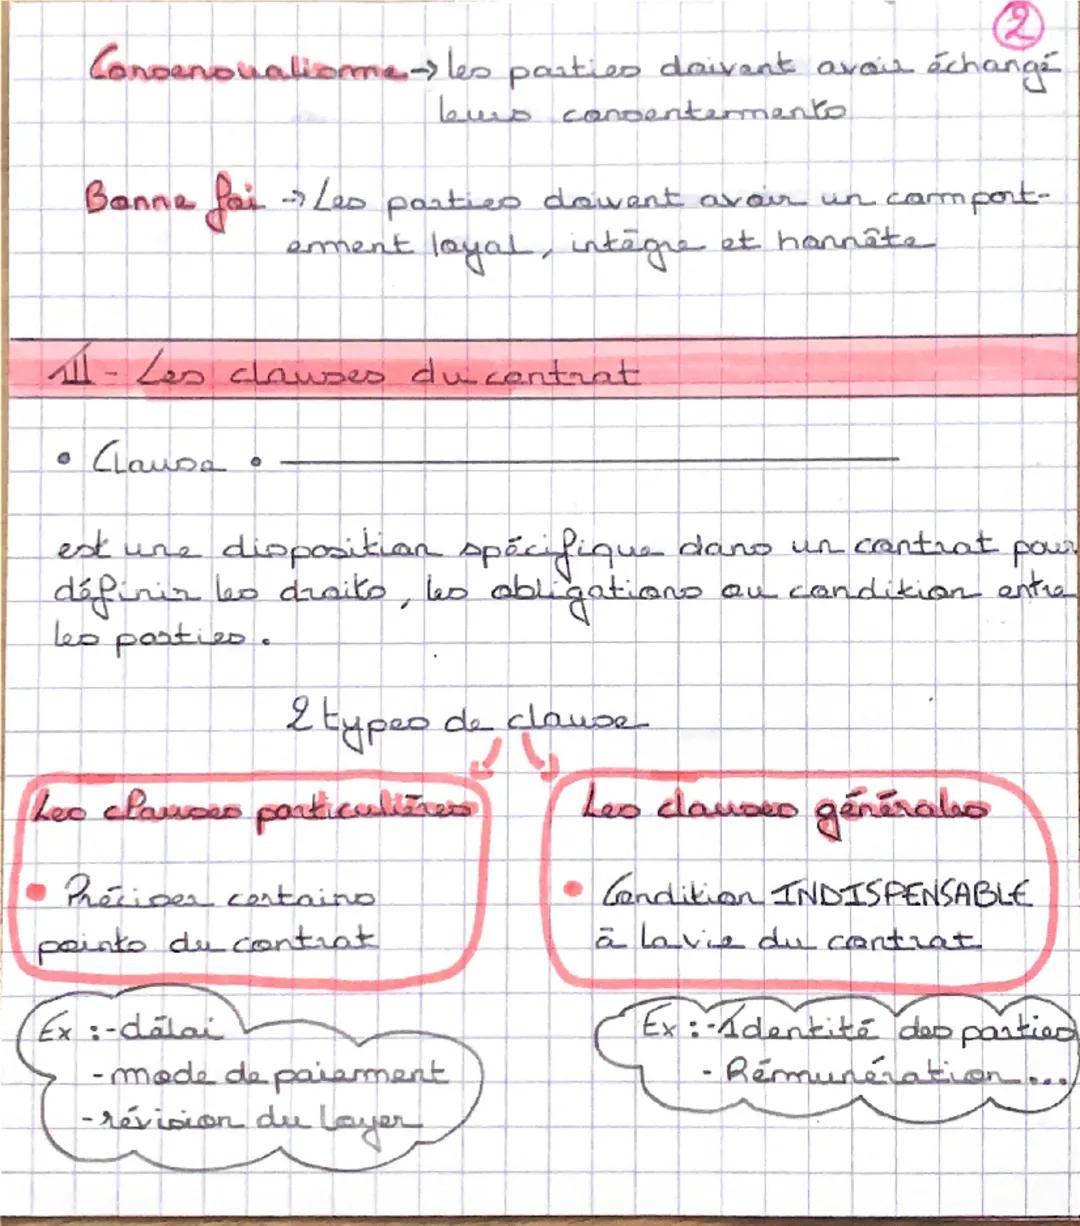 2
Consensualisme → les parties doivent avoir échangé
leurs consentements
Bonne foi → Les parties doivent avoir un comport-
ement loyal, intègre et honnête
III - Les clauses du contrat
• Clause •
est une disposition spécifique dans un contrat pour
définir les droits, les obligations ou condition entre
les parties.
2 types de clause
Les clauses particulières
• Préciser certains
points du contrat
Ex : - délai
- mode de paiement
- révision du loyer
Les clauses générales
• Condition INDISPENSABLE
à la vie du contrat
Ex : - Identité des parties
- Rémunération ...